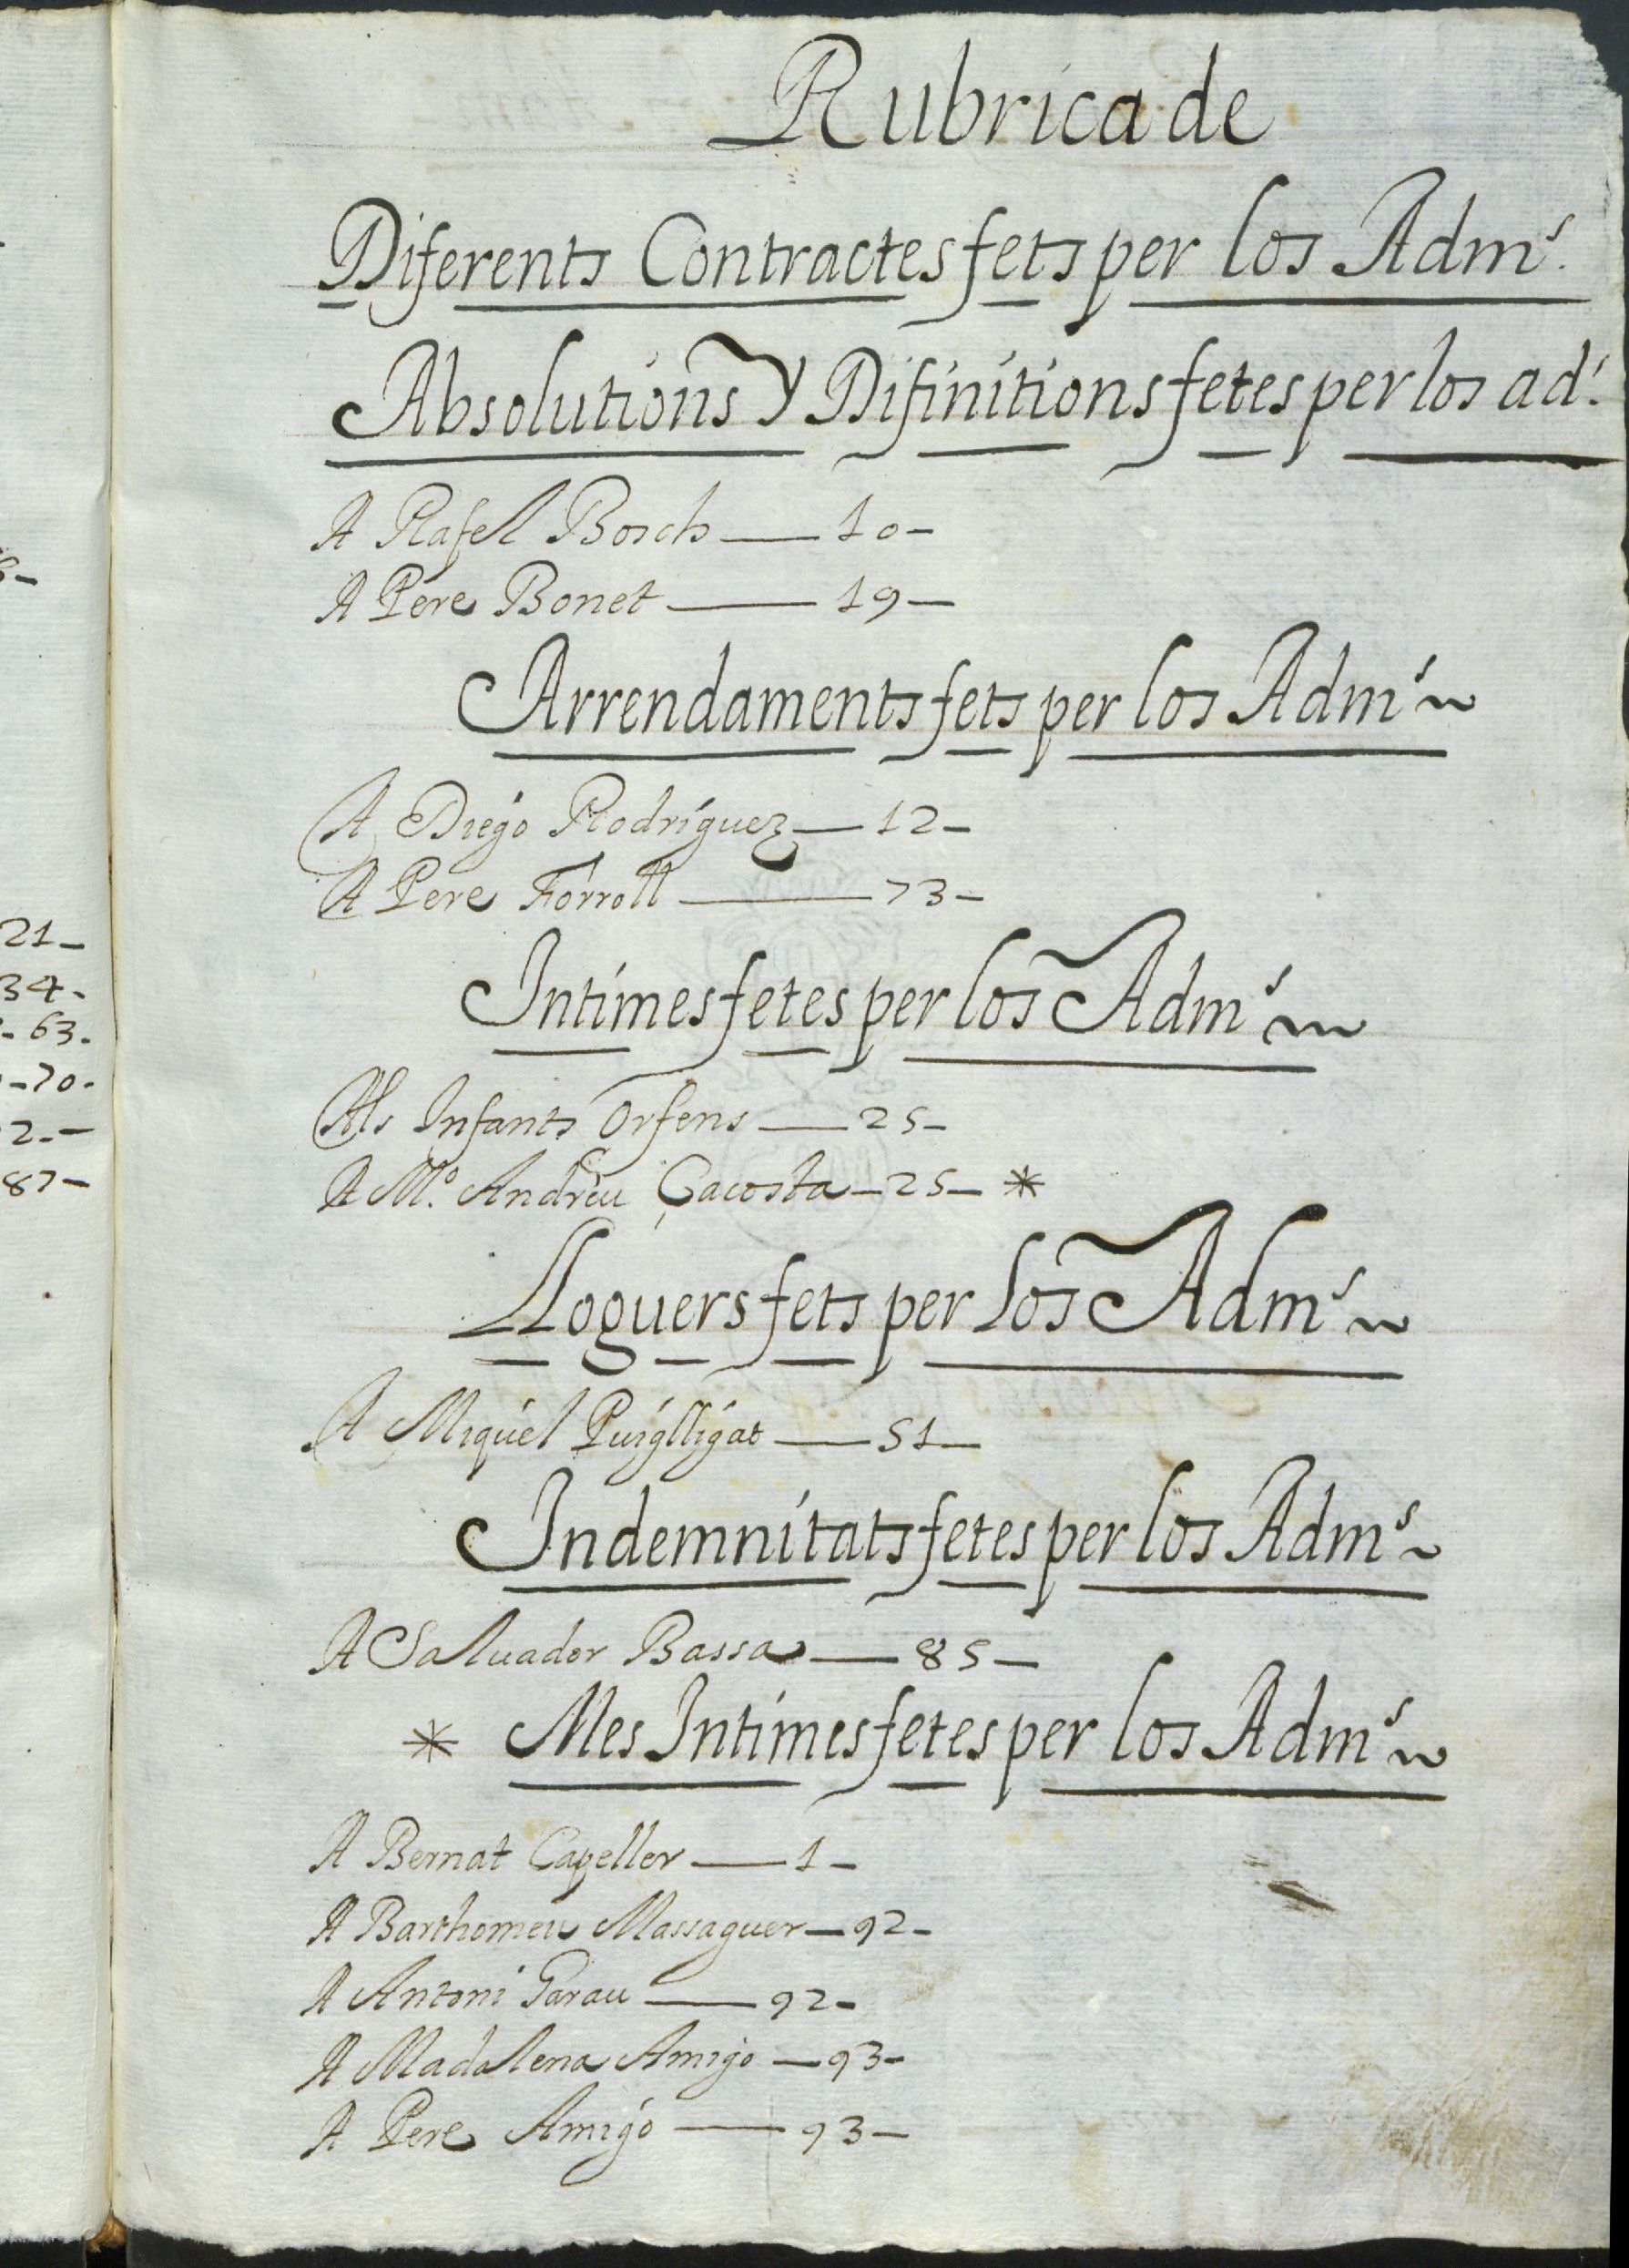 21-
34-
63.
70-
2.-
87-
Rubrica de
Diferents Contractes fets per los Adm.s
Absolutions y Difinitions fetes per los ad.s
A Rafel Bosch — 10 —
A Pere Bonet — 19 —
Arrendaments fets per los Adm.s
A Diego Rodriguez — 12 —
A Pere Forroll — 73 —
Intimes fetes per los Adm.s
Als Infants Orfens — 25 —
A M.o Andreu Çacosta — 25 — *
Lloguers fets per los Adm.s
A Miquel Puiglligat — 51 —
Indemnitats fetes per los Adm.s
A Saluador Bassa — 85 —
* Mes Intimes fetes per los Adm.s
A Bernat Capeller — 1 —
A Barthomeu Massaguer — 92 —
A Antoni Garau — 92 —
A Madalena Amigo — 93 —
A Pere Amigo — 93 —